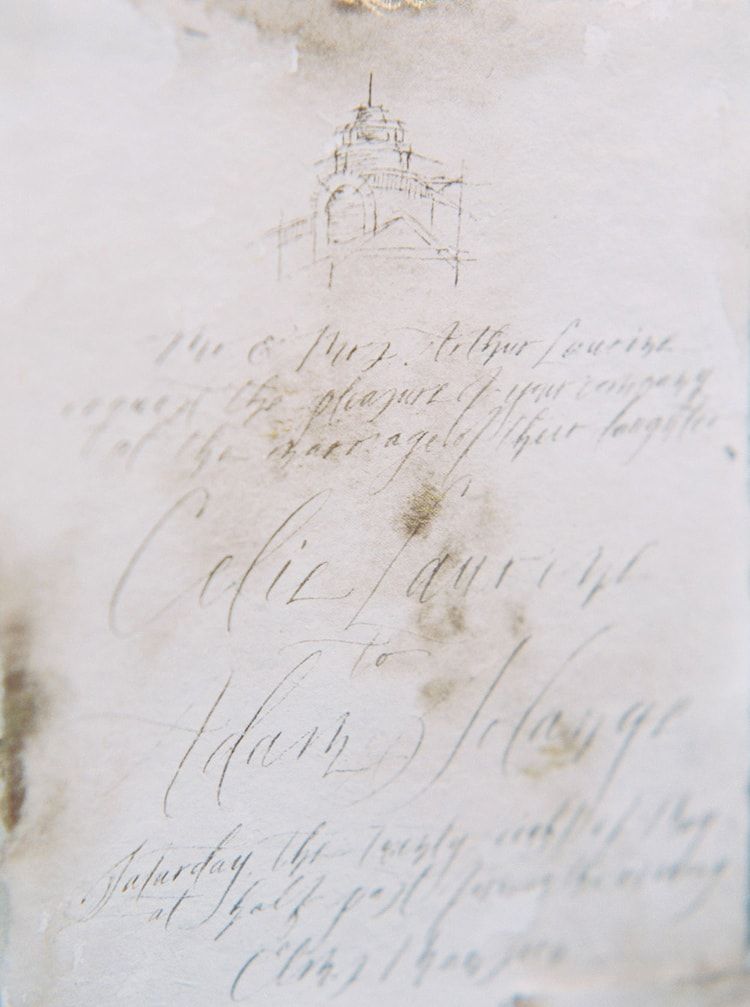 Mr & Mrs. Arthur Laurine
request the pleasure of your company
at the marriage of their daughter
Celie Laurine
to
Adam Solange
Saturday, the twenty eight of May
at half past in the evening